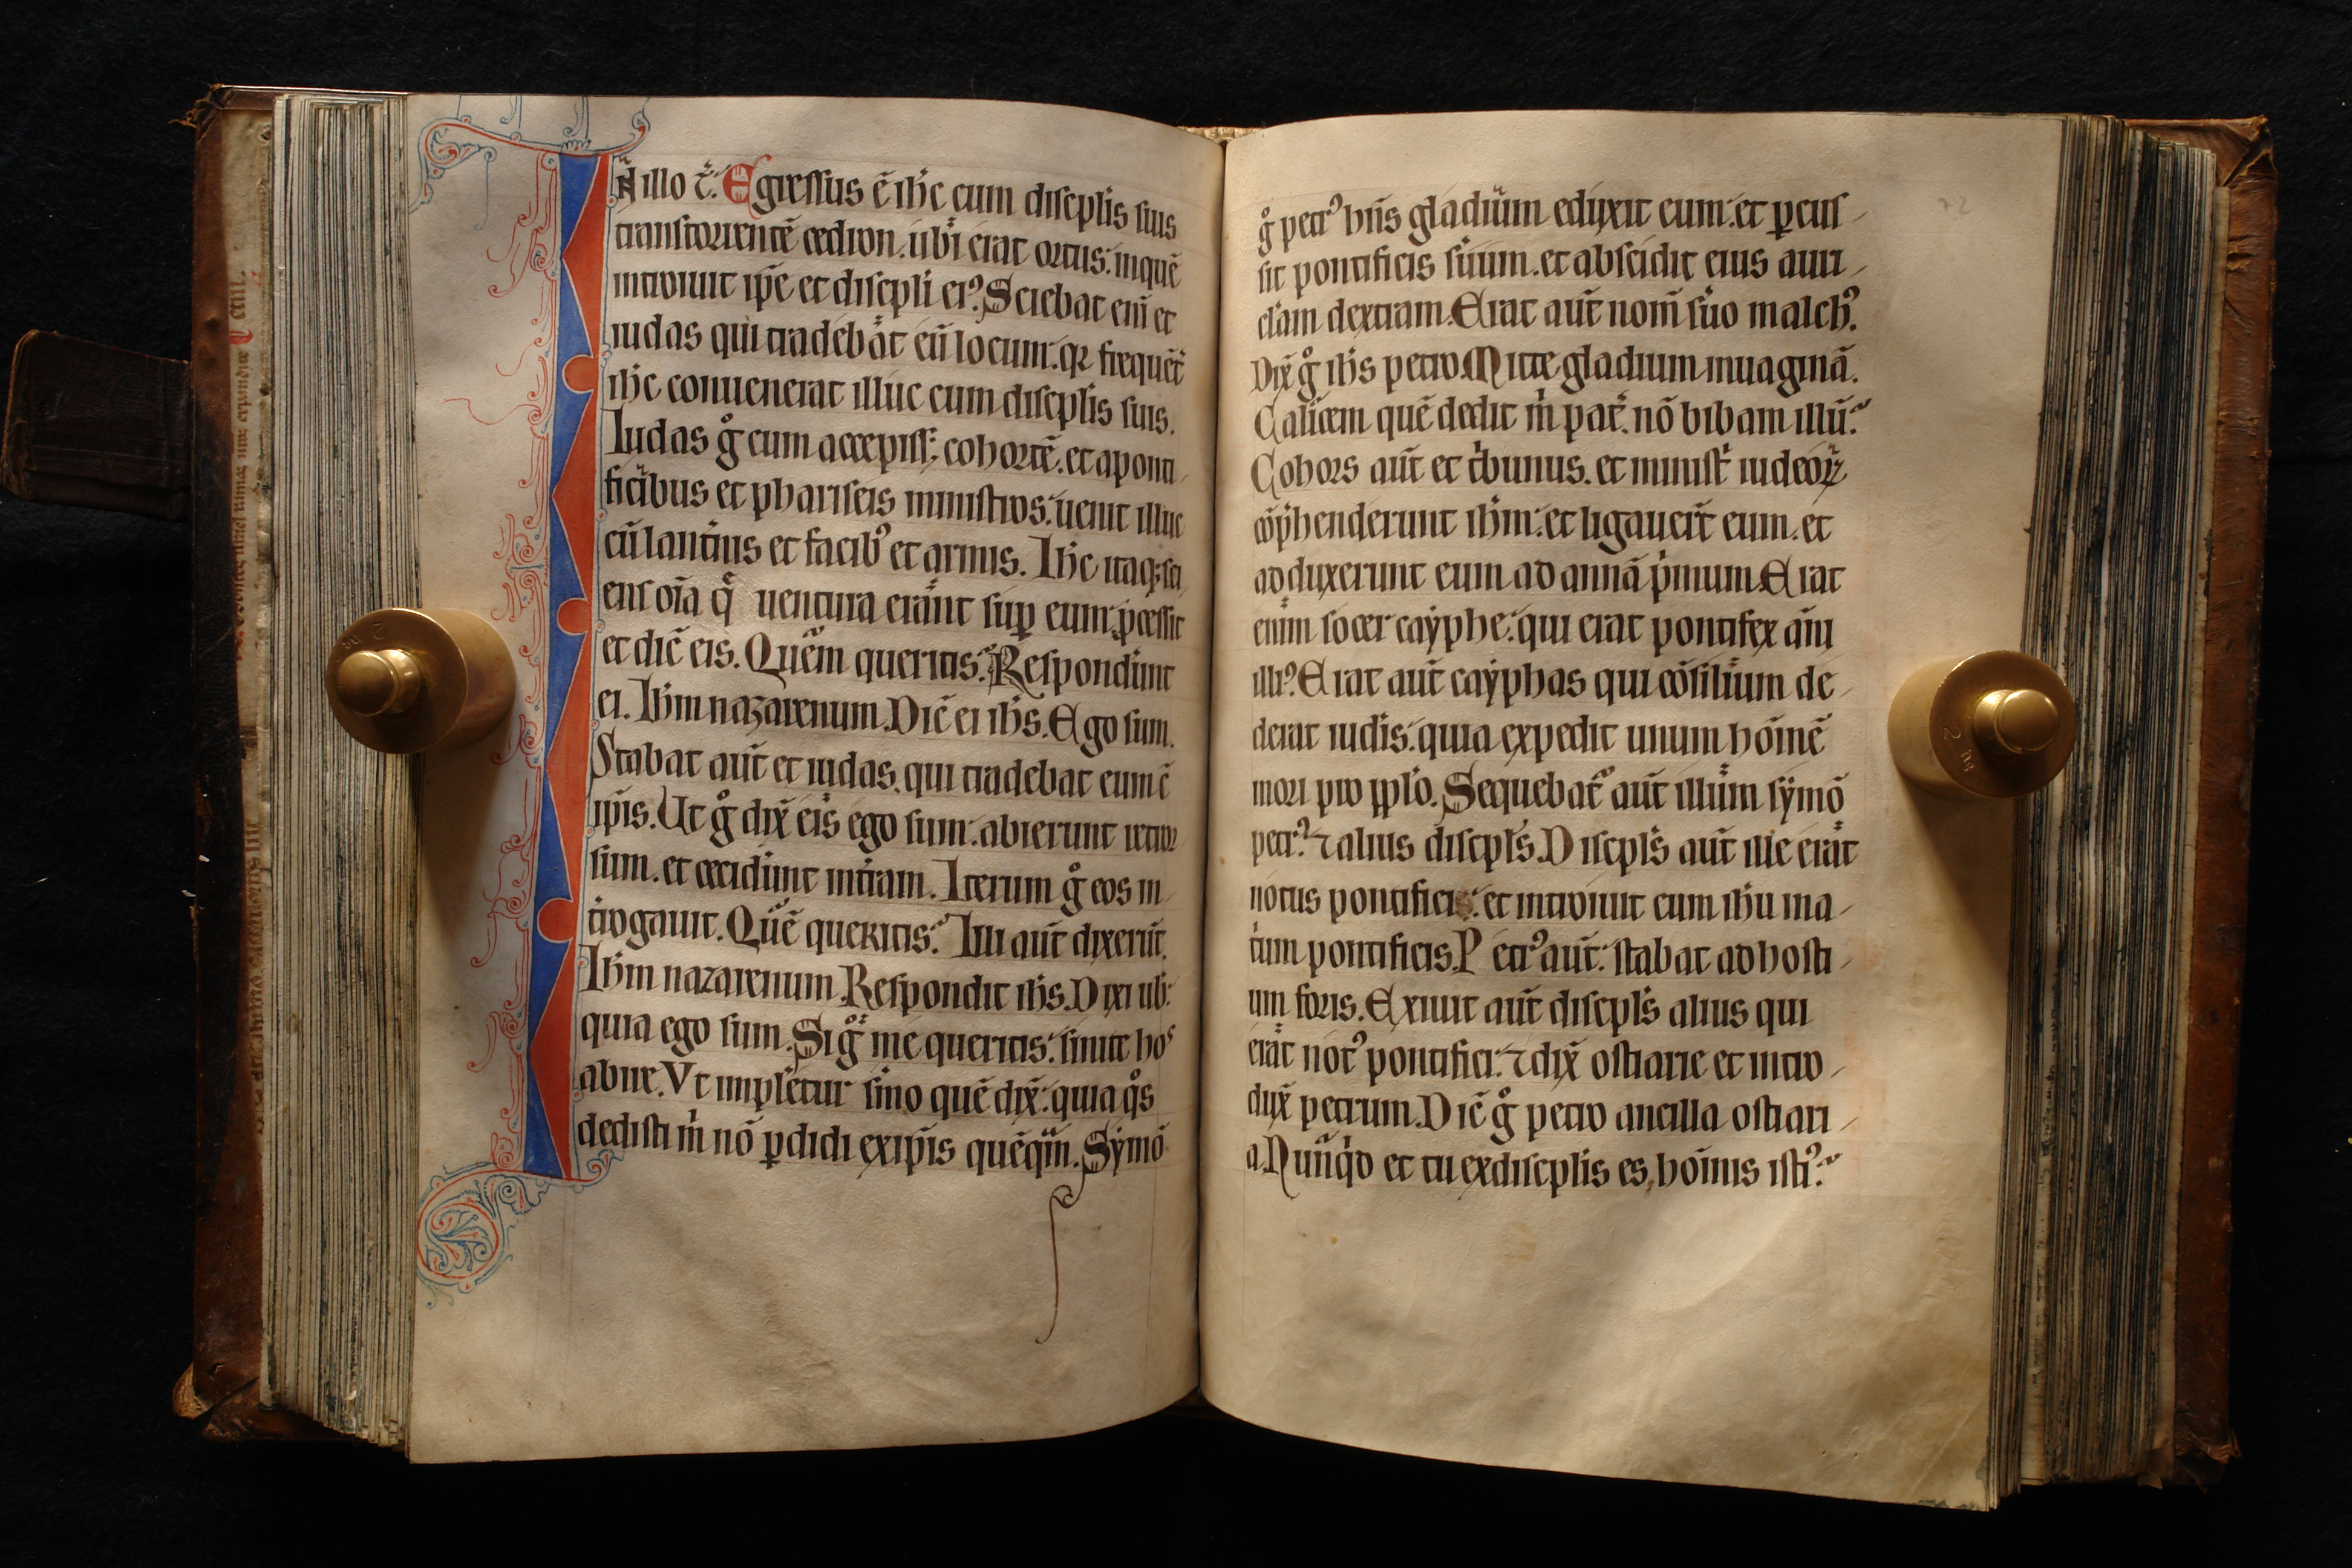 N illo t̄. Egressus ē ih̄c cum discip̄lis suis
transtorrentē cedron. ubi erat ortus: inquē
introiuit ip̄e et discip̄li eiꝰ. Sciebat eni̅ et
iudas qui tradebat eū locum: qꝛ frequēt̄
ih̄c conuenerat illuc cum discep̄lis suis.
Iudas gͦ cum accepiss; cohortē. et aponti
ficibus et phariseis ministros: uenit illuc
cū lant̄nis et facibꝰ et armis. Ih̄c itaqꝫ sci
ens oīa q̄ uentura erant suꝑ eum: ꝓcessit
et dic̄ eis. Quem queritis? Respondūnt
ei. Ih̄m nazarenum. Dic̄ ei ih̄s. Ego sum.
Stabat aut̄ et iudas. qui tradebat eum c̄
ip̄is. Ut gͦ dix̄ eis ego sum: abierunt retror
sum. et cecidūnt int̄ram. Iterum gͦ eos in
t̄rogauit. Quē queritis? Illi aut̄ dixerūt.
Ih̄m nazarenum. Respondit ih̄s. Dixi uob̄:
quia ego sum. Si gͦ me queritis: sinite hos
abire. Vt impletur s̄mo quē dix̄: quia qͦs
dedisti m̄ nō ꝑdidi exip̄is quēqm̄. Symō
gͦ petrꝰ hn̄s gladium eduxit eum: et ꝑcus
sit pontificis suum. et abscidit eius auri
clam dextram. Erat aut̄ nom̄ suo malchꝰ.
Dix̄ gͦ ih̄s petro. Mitte gladium inuaginā.
Calicem quē dedit m̄ pat̄. nō bibam illū?
Cohors aut̄ et tͥbunus. et minist̄ iudeoꝝ
cōp̄henderunt ih̄m: et ligauer̄t eum. et
adduxerunt eum ad annā pͥmum. Erat
enim socer cayphe: qui erat pontifex an̄i
illiꝰ. Erat aut̄ cayphas qui cōsilium de
derat iud̄is: quia expedit unum hōinē
mori pro pp̄lo. Sequebat̄ aut̄ illum symō
petrꝰ. ⁊ alius discip̄ls. Discip̄ls aut̄ ille erat
notus pontifici: et introiuit cum ih̄u ina
t̄um pontificis. Petrꝰ aut̄: stabat ad hosti
um foris. Exiuit aut̄ discip̄ls alius qui
erat notꝰ pontifici: ⁊ dix̄ ostiarie et intro
dux̄ petrum. Dic̄ gͦ petro ancilla ostiari
a. Nunq̄d et tu exdiscep̄lis es, hōinis istiꝰ?